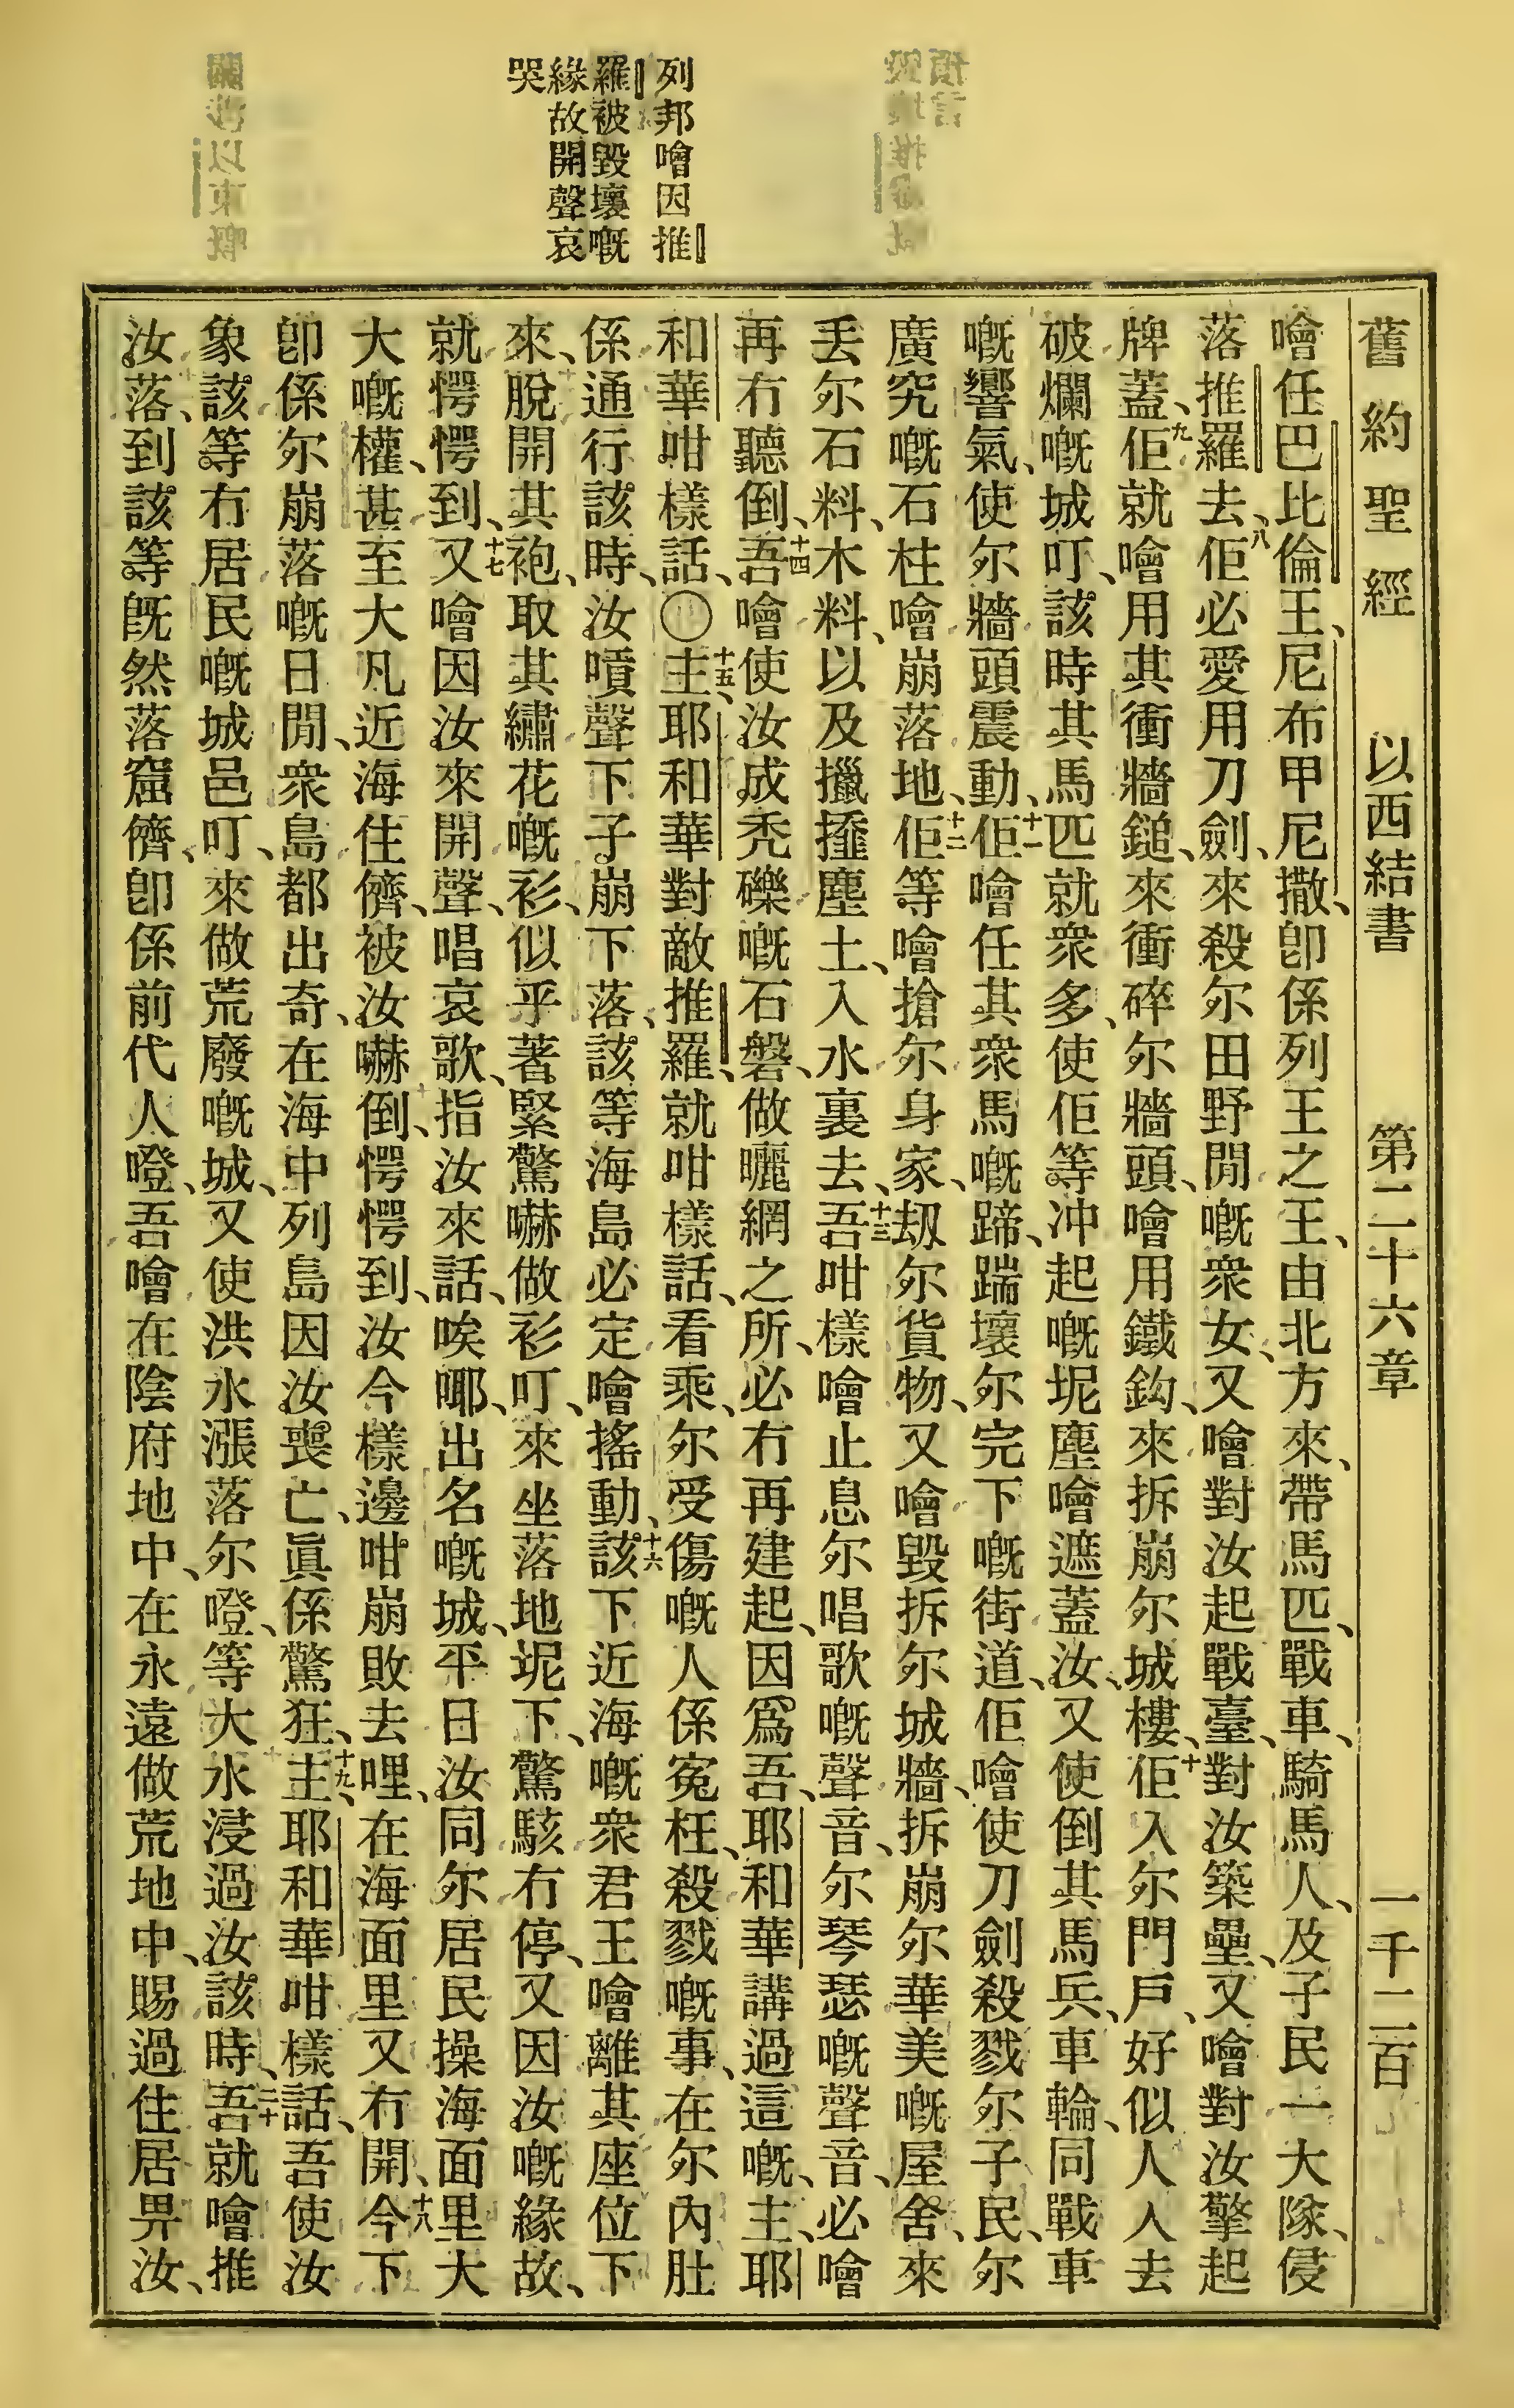 列邦噲因推
羅被毀壞嘅
緣故開聲哀
哭
舊約聖經 以西結書 第二十六章 一千二百
噲任巴比倫王、尼布甲尼撒、卽係列王之王、由北方來、帶馬匹、戰車、騎馬人、及子民一大隊、侵
落推羅去、八佢必愛用刀劍、來殺尔田野閒嘅衆女、又噲對汝起戰臺、對汝築壘、又噲對汝擎起
牌蓋、九佢就噲用其衝牆鎚、來衝碎尔牆頭、噲用鐵鈎、來拆崩尔城樓、十佢入尔門戶、好似人人去
破爛嘅城叮、該時其馬匹就衆多、使佢等冲起嘅坭塵噲遮蓋汝、又使倒其馬兵、車輪、同戰車
嘅響氣、使尔牆頭震動、十一佢噲任其衆馬嘅蹄、踹壞尔完下嘅街道、佢噲使刀劍殺戮尔子民、尔
廣究嘅石柱噲崩落地、十二佢等噲搶尔身家、刼尔貨物、又噲毀拆尔城牆、拆崩尔華美嘅屋舍、來
丢尔石料、木料、以及擸𢶍塵土、入水裏去、十三吾咁樣噲止息尔唱歌嘅聲音、尔琴瑟嘅聲音、必噲
再冇聽倒、十四吾噲使汝成禿礫嘅石磐、做曬網之所、必冇再建起、因爲吾、耶和華講過這嘅、主、耶
和華咁樣話、〇十五主、耶和華對敵推羅、就咁樣話、看乘、尔受傷嘅人係寃枉、殺戮嘅事、在尔內肚
係通行該時、汝噴聲下子崩下落、該等海島必定噲搖動、十六該下近海嘅衆君王噲離其座位下
來、脫開其袍、取其繡花嘅衫、似乎著緊驚嚇做衫叮、來坐落地坭下、驚駭冇停、又因汝嘅緣故、
就愕愕到、十七又噲因汝來開聲、唱哀歌、指汝來話、唉㖿、出名嘅城、平日汝同尔居民操海面里大
大嘅權、甚至大凡近海住儕、被汝嚇倒、愕愕到、汝今樣邊咁崩敗去哩、在海面里又冇開、十八今下
卽係尔崩落嘅日閒、衆島都出奇、在海中列島因汝喪亡、眞係驚狂、十九主、耶和華咁樣話、吾使汝
象該等冇居民嘅城邑叮、來做荒廢嘅城、又使洪水漲落尔噔、等大水浸過汝該時、二十吾就噲推
汝落、到該等旣然落窟儕、卽係前代人噔、吾噲在陰府地中、在永遠做荒地中、賜過住居畀汝、